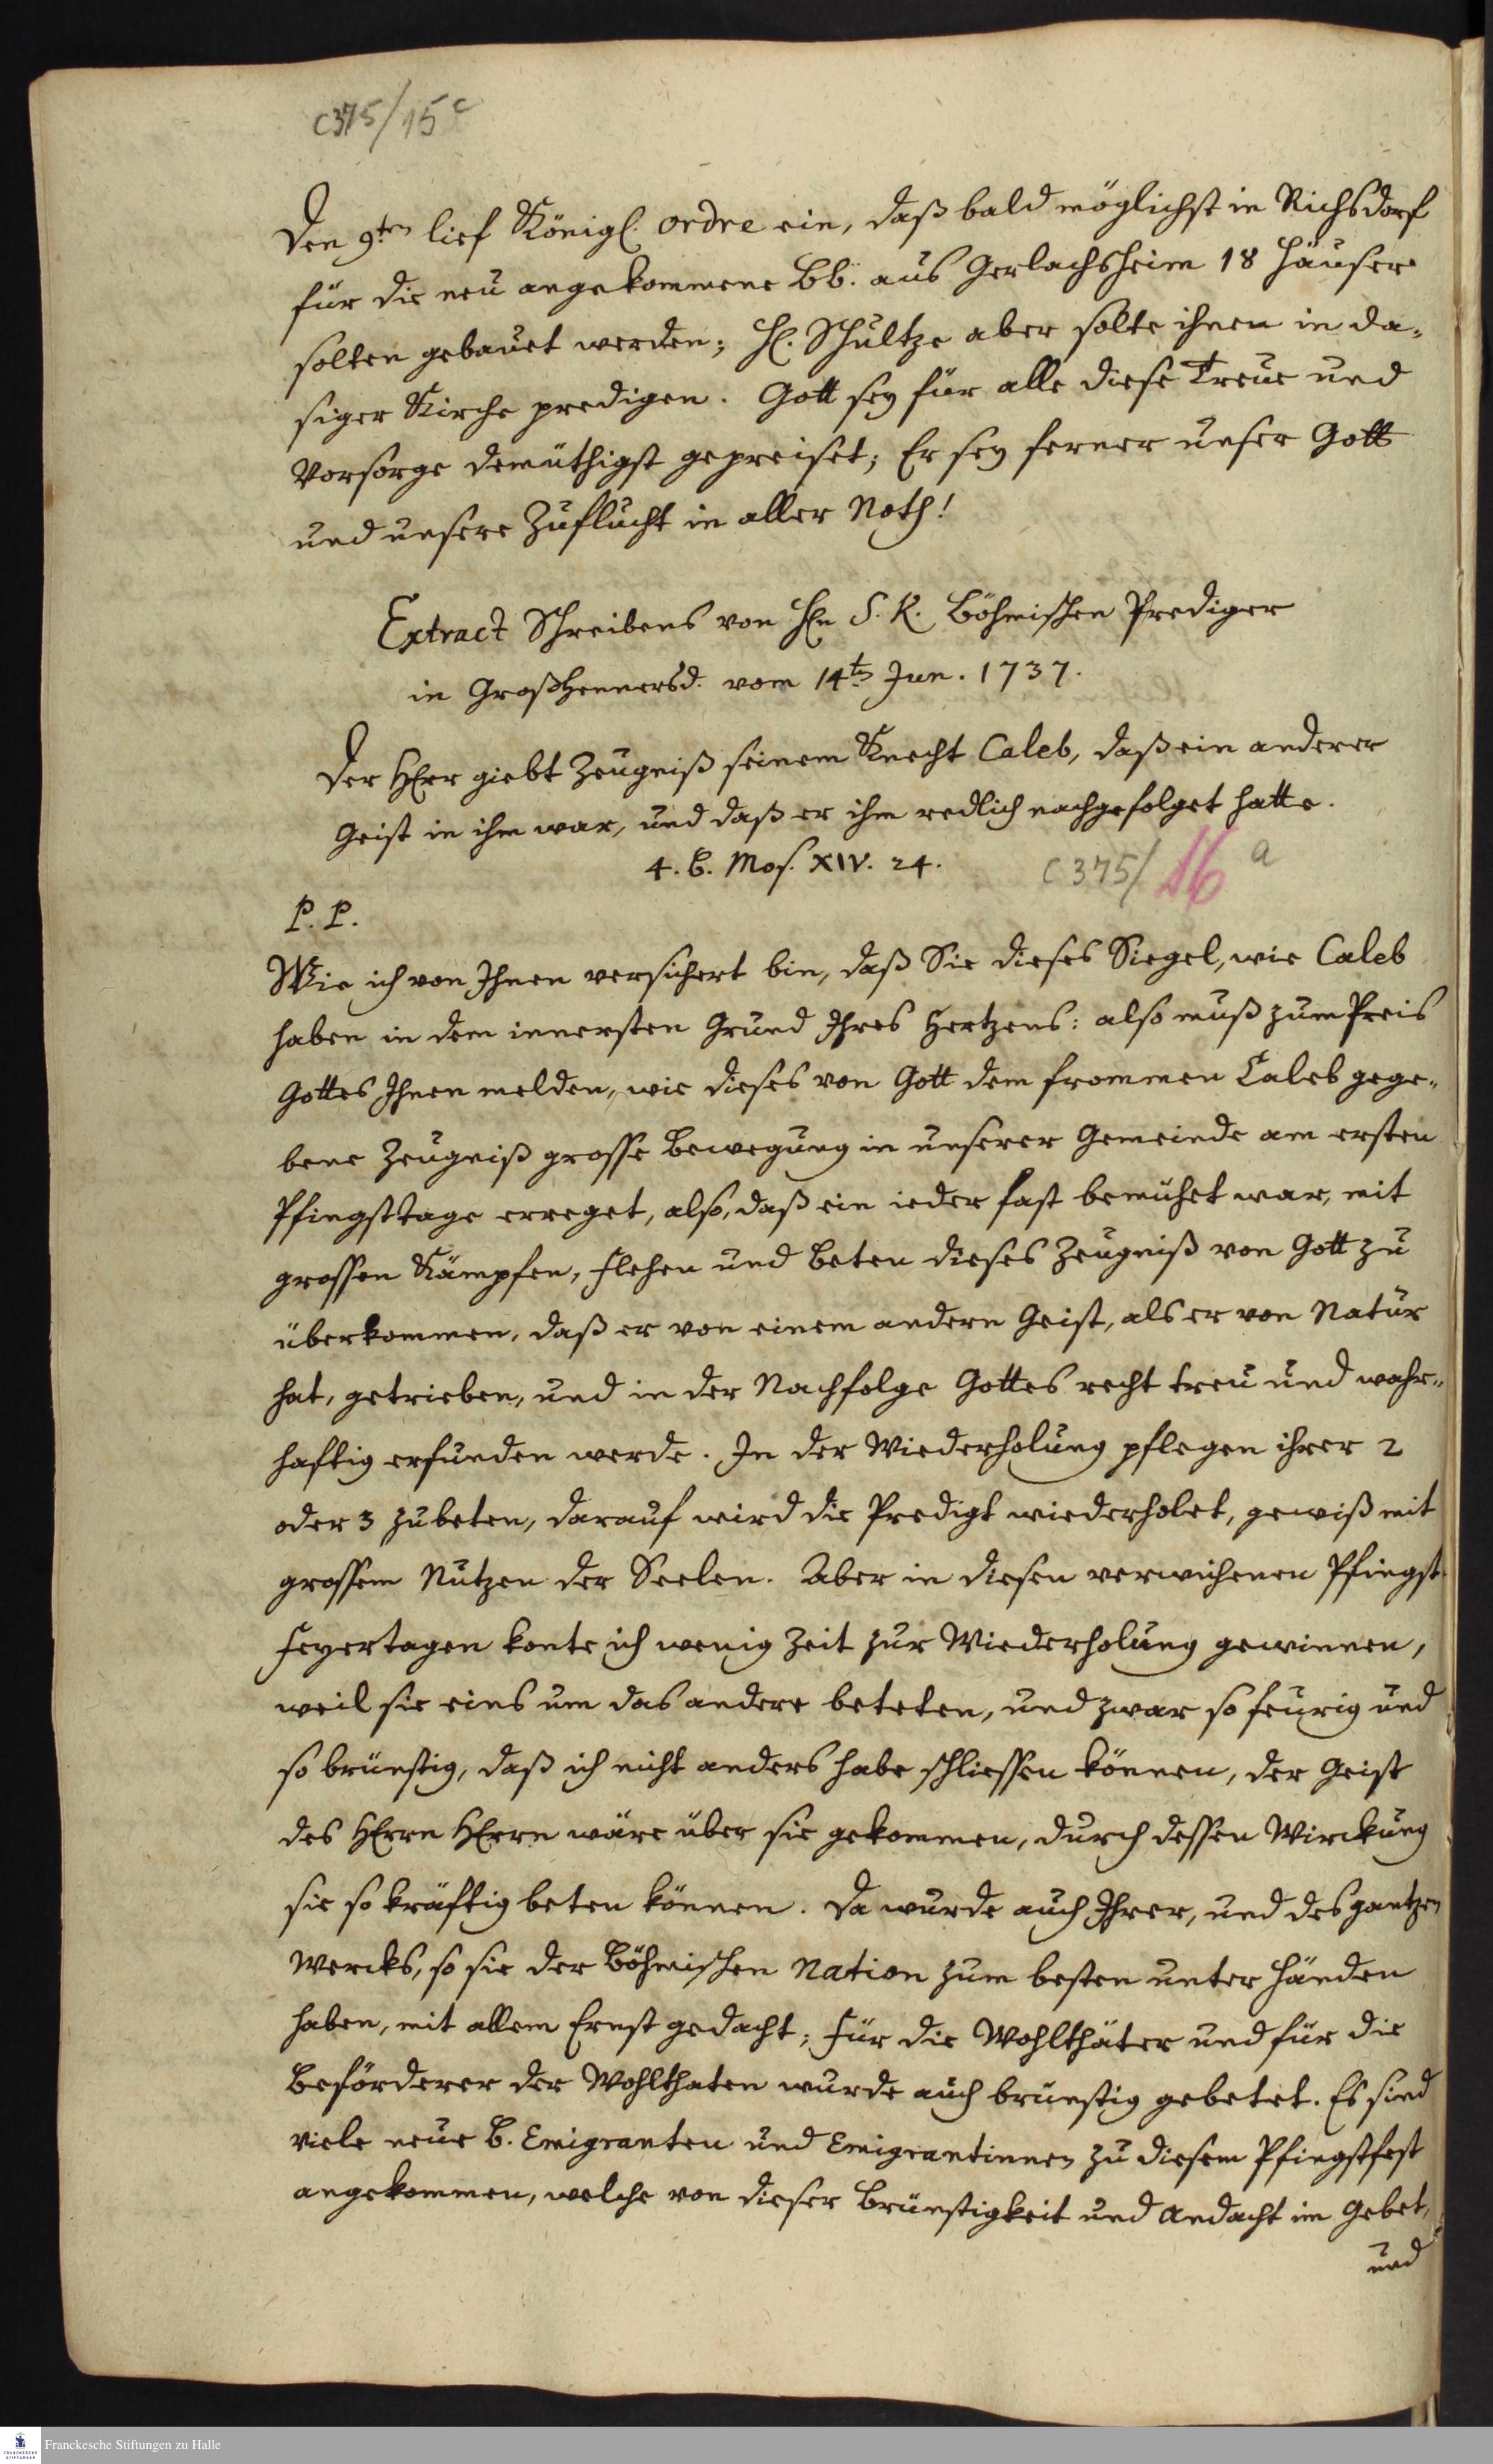 C375/15c
Den 9ten lief Königl. ordre ein, daß bald möglichst in Richsdorf
für die neu angekommene Bb. aus Gerlachsheim 18 Häuser
solten gebauet werden; H. Schultze aber solte ihnen in da-
siger Kirche predigen. Gott sey für alle diese Treue und
Vorsorge demüthigst gepreiset; Er sey ferner unser Gott
und unsere Zuflucht in aller Noth!
Extract Schreibens von Hn S. K. Böhmischen Prediger
in Großhennersd. vom 14ten Jun. 1737.
Der HErr giebt Zeugniß seinem Knecht Caleb, daß ein anderer
Geist in ihm war, und daß er ihm redlich nachgefolget hatte.
4. B. Mos. XIV. 24.
C 375/16 a
P. P.
Wie ich von Ihnen versichert bin, daß Sie dieses Siegel, wie Caleb
haben in dem innersten Grund Ihres Hertzens: also muß zum Preis
Gottes Ihnen melden, wie dieses von Gott dem frommen Caleb gege-
bene Zeugniß grosse Bewegung in unserer Gemeinde am ersten
Pfingsttage erreget, also, daß ein ieder fast bemühet war, mit
grossen Kämpfen, Flehen und Beten dieses Zeugniß von Gott zu
überkommen, daß er von einem andern Geist, als er von Natur
hat, getrieben, und in der Nachfolge Gottes recht treu und wahr-
haftig erfunden werde. In der Wiederholung pflegen ihrer 2
oder 3 zu beten, darauf wird die Predigt wiederholet, gewiß mit
grossem Nutzen der Seelen. Aber in diesen verwichenen Pfingst-
Feyertagen konte ich wenig Zeit zur Wiederholung gewinnen,
weil sie eins um das andere beteten, und zwar so feurig und
so brünstig, daß ich nicht anders habe schliessen können, der Geist
des HErrn HErrn wäre über sie gekommen, durch dessen Wirckung
sie so kräftig beten können. Da wurde auch Ihrer, und des gantzen
Wercks, so sie der Böhmischen Nation zum besten unter Händen
haben, mit allem Ernst gedacht; Für die Wohlthäter und für die
Beförderer der Wohlthaten wurde auch brünstig gebetet. Es sind
viele neue B. Emigranten und Emigrantinnen zu diesem Pfingstfest
angekommen, welche von dieser Brünstigkeit und Andacht im Gebet,
und
Franckesche Stiftungen zu Halle